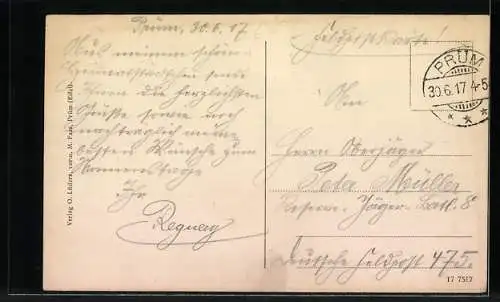 Prüm, 30.6.17
Aus meinem schön.
Heimatstädtchen sende
Ihnen die herzlichsten
Grüße sowie auch
nachträglich meine
besten Wünsche zum
Namenstage
Ihr
Feldpostkarte!
PRÜM
30.6.17 4-5
* * *
An
Herrn Oberjäger
Peter Müller
Reserve-Jäger-Batl. 8
Deutsche Feldpost 475.
17 7517
Verlag O. Lüders, vorm. M. Prüm (Eifel).